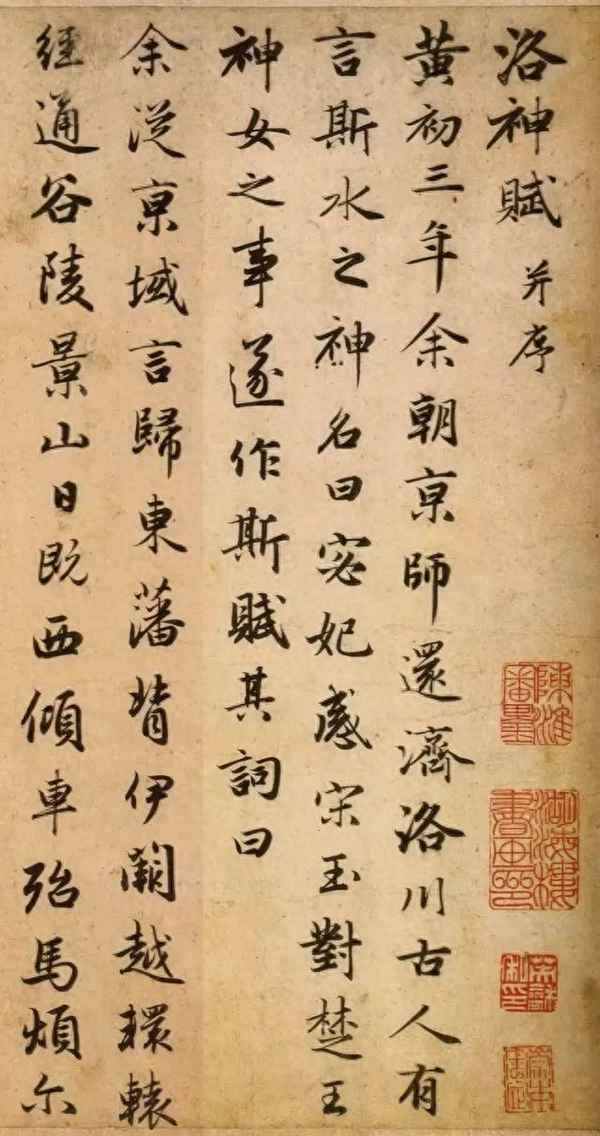 洛神賦 并序
黃初三年余朝亰師還濟洛川古人有
言斯水之神名曰宓妃感宋玉對楚王
神女之事遂作斯賦其詞曰
余從亰域言歸東藩背伊闕越轘轅
經通谷陵景山日既西傾車殆馬煩尒